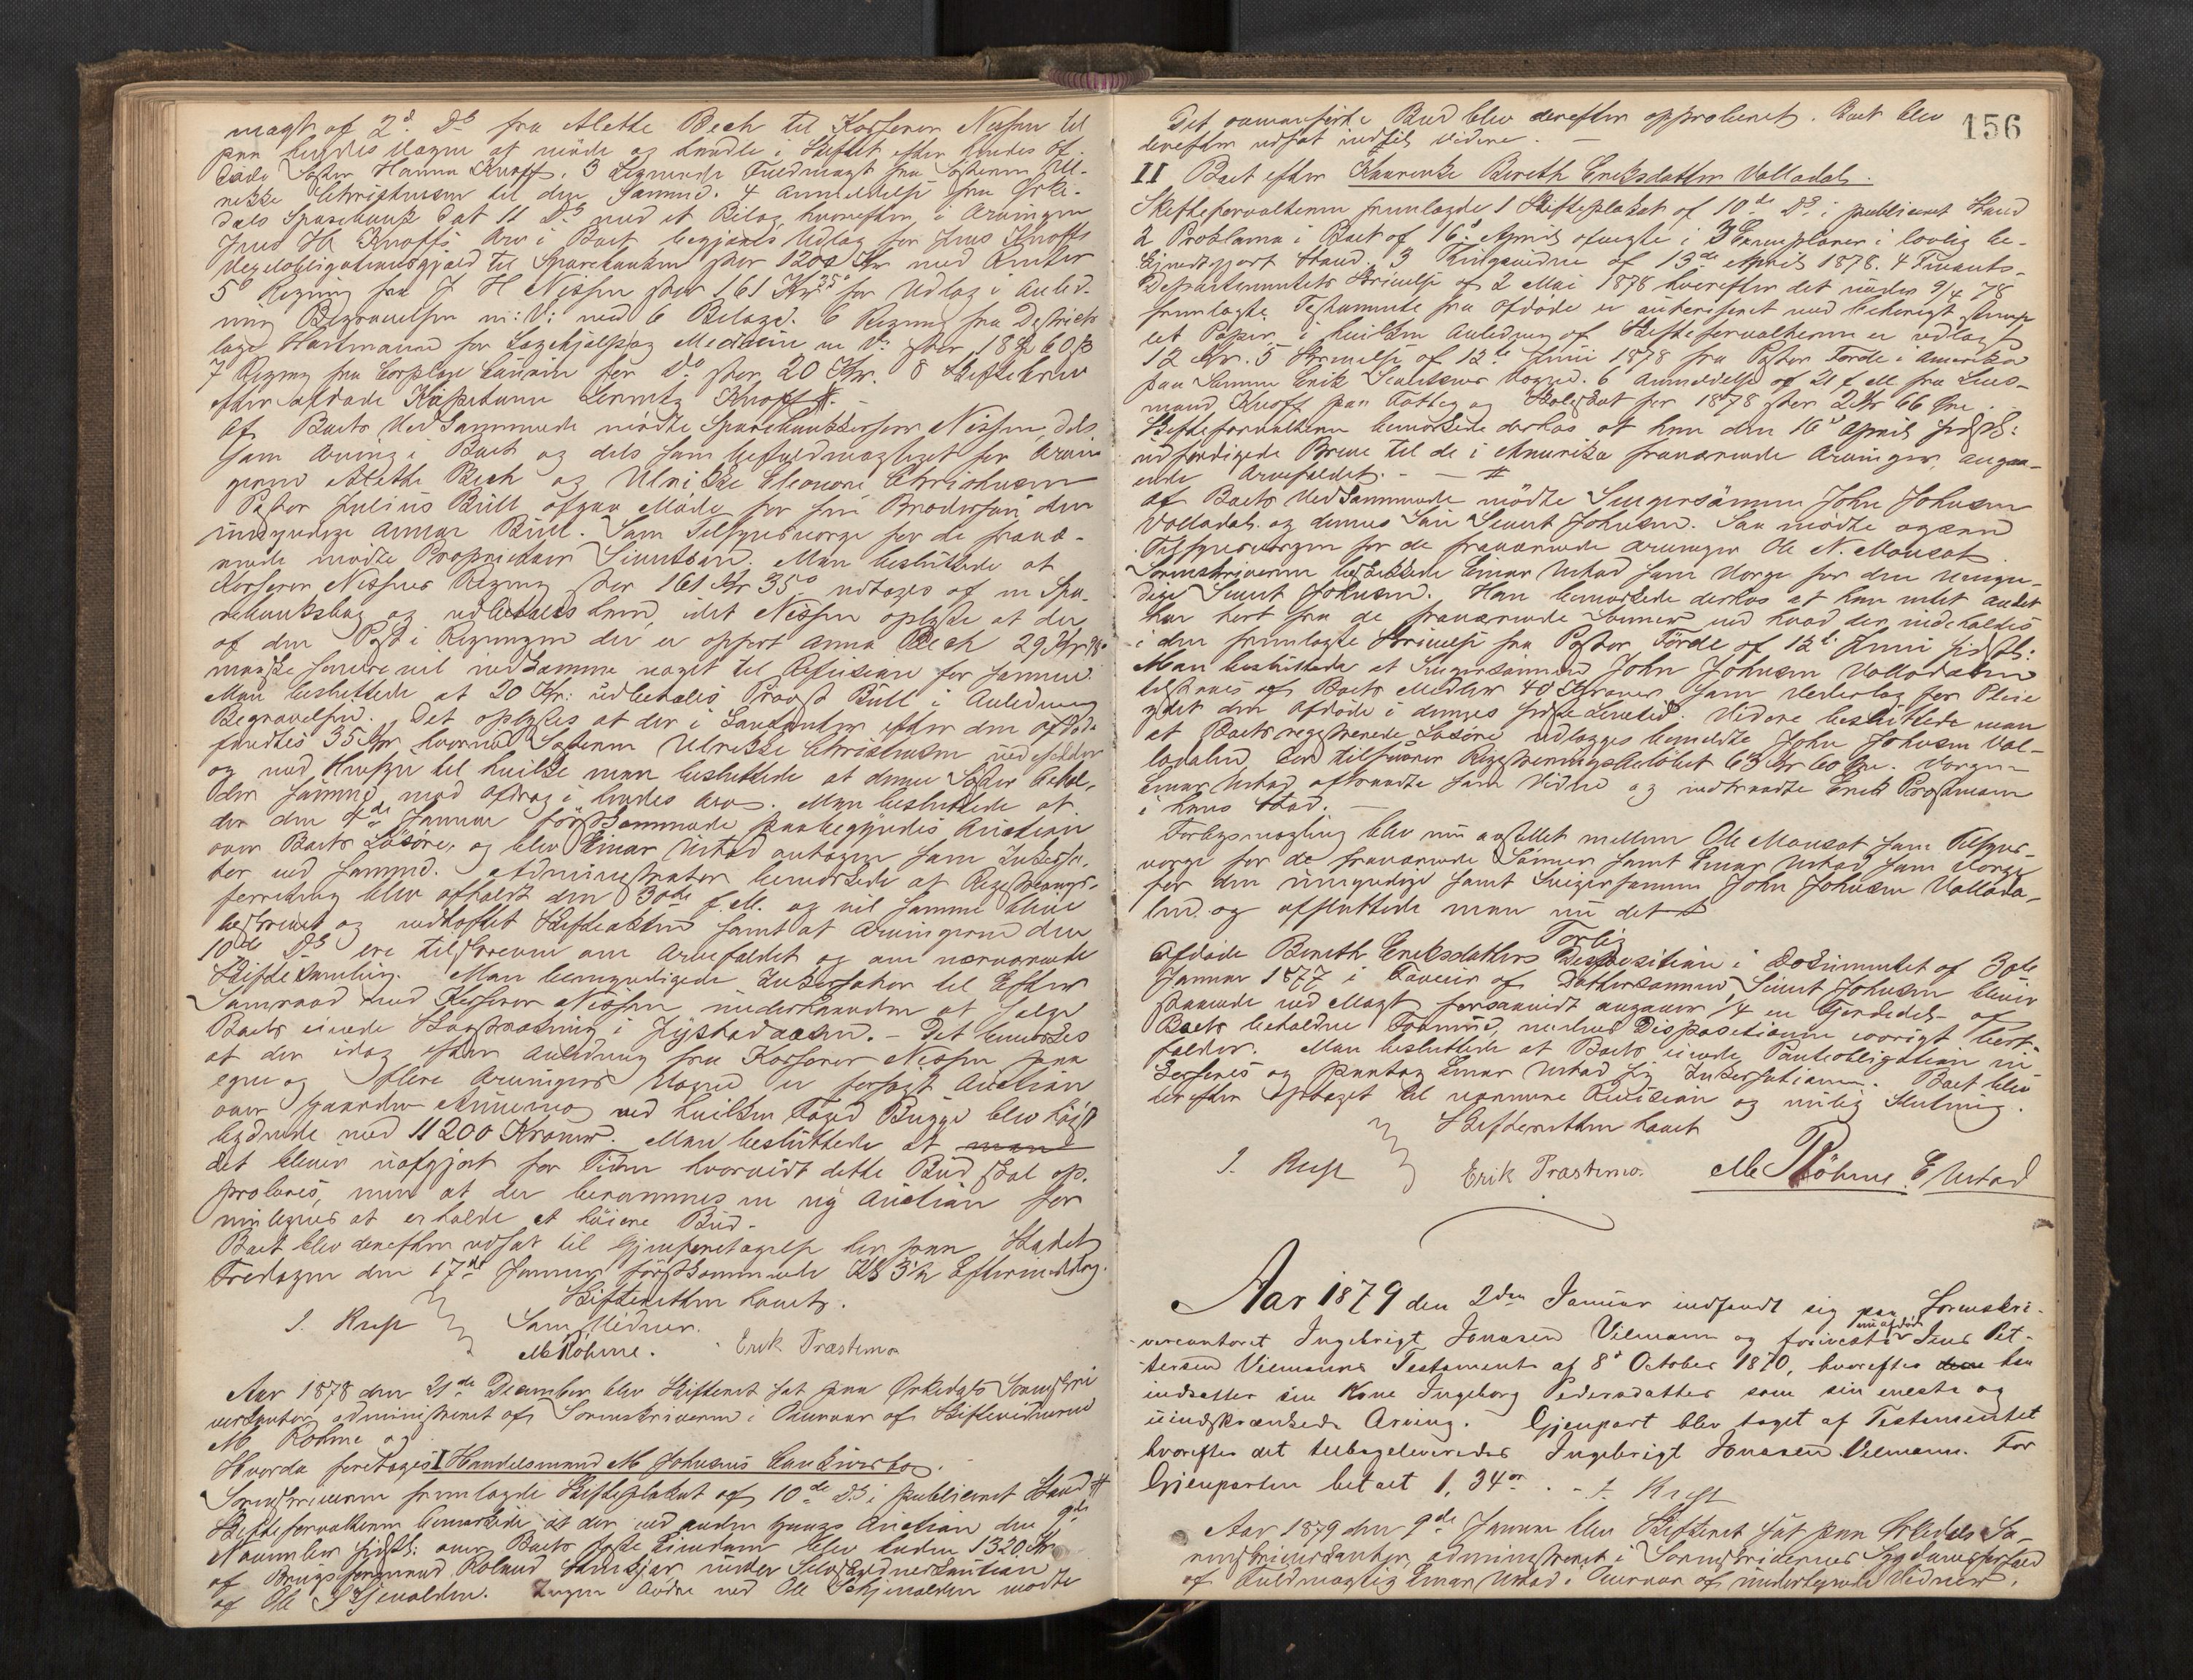 magt af 2d Ds fra Alethe Bech til Kasserer Nissen til
paa hendes Vegne at møde og handle i Skiftet efter hendes af-
døde Søster Hanna Knoff. 3 Lignende Fuldmagt fra Søsteren Ul-
rikke Christensen til den Samme. 4 Anmeldelse fra Orke-
dals Sparebank dat 11 Ds med et Bilag hvorefter i Arvingen
Jens H Knoffs Arv i Boet begjæres Udlag for Jens Knoffs
Vexelobligationsgjæld til Sparebanken stor 1200 Kr med Renter
5 Regning fra J H Nissen stor 161 Kr 35 for Udlæg i Anled-
ning Begravelsen m: V: med 6 Bilage. 6 Regning fra Distrikts
læge Hartmann for Lægehjælp og Medicin m V: stor 18 60
7 Regning fra Corpslæge for Do stor 20 Kr. 8 Skiftebrev
efter afdøde Kapitain Knoff #.
Af Boets Vedkommende mødte Sparebankkasserer Nissen dels
som Arving i Boet og dels som befuldmægtiget for Arvin
gerne Alethe Bech og Ulrikke Eleonore Christensen
Pastor Julius Büll afgav Møde for sin Brodersøn den
umyndige Büll. Som Tilsynsværge for de fravæ-
rende mødte Proprietær Sivertsen. Man besluttede at
Kasserer Nissens Regning stor 161 Kr 35 udtages af en Spa-
rebanksbog og udbetales ham, idet Nissen oplyste at der
af den Post i Regningen der er opført Anna Bech 29 Kr
maaske senere vil indkomme noget til Refusion for samme.
Man besluttede at 20 Kr: udbetales Provst Büll i Anledning
Begravelsen. Det oplystes at der i efter den afdøde
fandtes 35 Kr hvorved Søsteren Ulrikke Christensen
og med Hensyn til hvilke man besluttede at denne Søster behol-
der samme mod Afdrag i hendes Arv. Man besluttede at
der den Januar førstkommende paabegyndes Auction
over Boets Løsøre, og blev Einar Ustad antagen som Inkassa-
tor ved samme. Administrator bemærkede at Registrerings-
forretning blev afholdt den 30te f. M. og vil samme blive
beskrevet og vedhæftet Skifteakten samt at Arvingerne den
10de Ds ere tilskrevne om Arvefaldet og om nærværende
Skiftesamling. Man bemyndigede Inkassator til Efter
Samraad med Kasserer Nissen underhaanden at sælge
Boets eiende Skogstrækning i . – Det bemærkes
at der idag efter Anledning fra Kasserer Nissen paa
egne og flere Arvingers Vegne er forsøgt Auction
over Gaarden ved hvilken Foged Bugge blev høist
bydende med 11200 Kroner. Man besluttede at
det bliver uafgjort for Tiden hvorvidt dette Bud skal ap-
proberes, men at der berammes en ny Auction for
muligens at erholde et høiere Bud.
Boet blev derefter udsat til Gjenforetagelse her paa Stedet
Fredagen den 17de Januar førstkommende Kl 3½ Eftermiddag.
Skifteretten hævet.
I. Krefft
Som Vidner.
M Röhme. Erik Præstmo
Aar 1878 den 21de December blev Skifteret sat paa Orkedals Sorenskri
verkontor, administreret af Sorenskriveren i Overvær af Skiftevidnerne
M. Röhme og
Hvorda foretoges I Handelsmand M Johnsens Concursbo.
Sorenskriveren fremlagde Skifteplakat af 10de Ds i publiceret Stand #
Skifteforvalteren bemærkede at der ved anden Gangs Auction den 9de
November sidstl: over Boets faste Eiendom blev buden 1320 Kr
af under Selvskyldnerkaution
af Ole Skjenalden. Ingen Andre end Ole Skjenalden mødte
156
Det ommeldte Bud blev derefter approberet. Boet blev
derefter udsat indtil videre. –
II Boet efter Karenke Bereth Eriksdatter Volladal.
Skifteforvalteren fremlagde 1 Skifteplakat af 10de Ds i publiceret Stand
2 Proklama i Boet af 16de April i 3 Exemplarer i lovlig be-
kjendtgjort Stand. 3 Thingsvidne af 13de April 1878. 4 Finants-
Departementets Skrivelse af 2 Mai 1878 hvorefter det under 9/4 78
fremlagte Testamente fra afdøde er autoriseret med behørigt stemp
let Papir, i hvilken Anledning af Skifteforvalteren er udlagt
12 Kr. 5 Skrivelse af 12te Juni 1878 fra Pastor Førde i Amerika
paa Sønnen Erik Vegne. 6 Anmeldelse af 21 f M fra Lens-
mand Knoff paa Fattig og Skoleskat for 1878 stor 2 Kr 66 Øre.
Skifteforvalteren bemærkede derhos at han den 16de April sidstl:
udfærdigede Breve til de i Amerika fraværende Arvinger, angaa-
ende Arvefaldet. – #
Af Boets Vedkommende mødte Svigersønnen John Johnsen
Volladal og dennes Søn Sivert Johnsen. Saa mødte ogsaa
Tilsynsværgen for de fraværende Arvinger Ole N. Mousat
Sorenskriveren beskikkede Einar Ustad som Værge for den umyn-
dige Sivert Johnsen. Han bemærkede derhos at han intet andet
har hørt fra de fraværende Sønner end hvad der indeholdes
i den fremlagte Skrivelse fra Pastor Førde af 12te Juni sidstl:
Man besluttede at Svigersønnen John Johnsen Volladalen
tilstaaes af Boets Midler 40 Kroner som Vederlag for Pleie
ydet den Afdøde i dennes sidste Levetid. Videre besluttede man
at Boets registrerede Løsøre udlægges bemeldte John Johnsen Vol-
ladalen, for Registreringsbeløbet 63 Kr 60 Øre. Værgen
Einar Ustad aftraadte som Vidne og indtraadte Erik Præstmoen
i hans Sted. –
Forligsmægling blev nu anstillet mellem Ole Mousat som Tilsyns-
værge for de fraværende Sønner samt Einar Ustad som Værge
for den umyndige samt Svigersønnen John Johnsen Vollada-
len. og afsluttede man nu det
Forlig
Afdøde Bereth Eriksdatters Disposition i Dokumentet af 30te
Januar 1877 i Faveur af Dattersønnen Sivert Johnsen bliver
staaende ved Magt forsaavidt angaaer 1/4 en Fjerdedel af
Boets beholdne Formue, medens Dispositionen iøvrigt bort-
falder. Man besluttede at Boets eiende Panteobligation in-
kasseres og paatog Einar Ustad sig Inkassationen. Boet blev
derefter optaget til nærmere Revision og mulig Slutning.
Skifteretten hævet
I. Krefft Erik Præstmo. M Röhme. E Ustad
Aar 1879 den 2den Januar indfandt sig paa Sorenskri-
vercontoret Ingebrigt Jonasen Vilmann og foreviste nu afdød Jens Pet-
tersen Vilmanns Testament af 8de October 1870, hvorefter han
indsætter sin Kone Ingeborg Pedersdatter som sin eneste og
uindskrænkede Arving. Gjenpart blev taget af Testamentet
hvorefter det tilbageleveredes Ingebrigt Jonasen Vilmann. For
Gjenparten betalt 1, 34 or. – I. Krefft
Aar 1879 den 9de Januar blev Skifteret sat paa Orkedals So-
renskriverkontor, administreret i Sorenskriverens Sygdomsforfald
af Fuldmægtig Einar Ustad i Overvær af undertegnede Vidner.